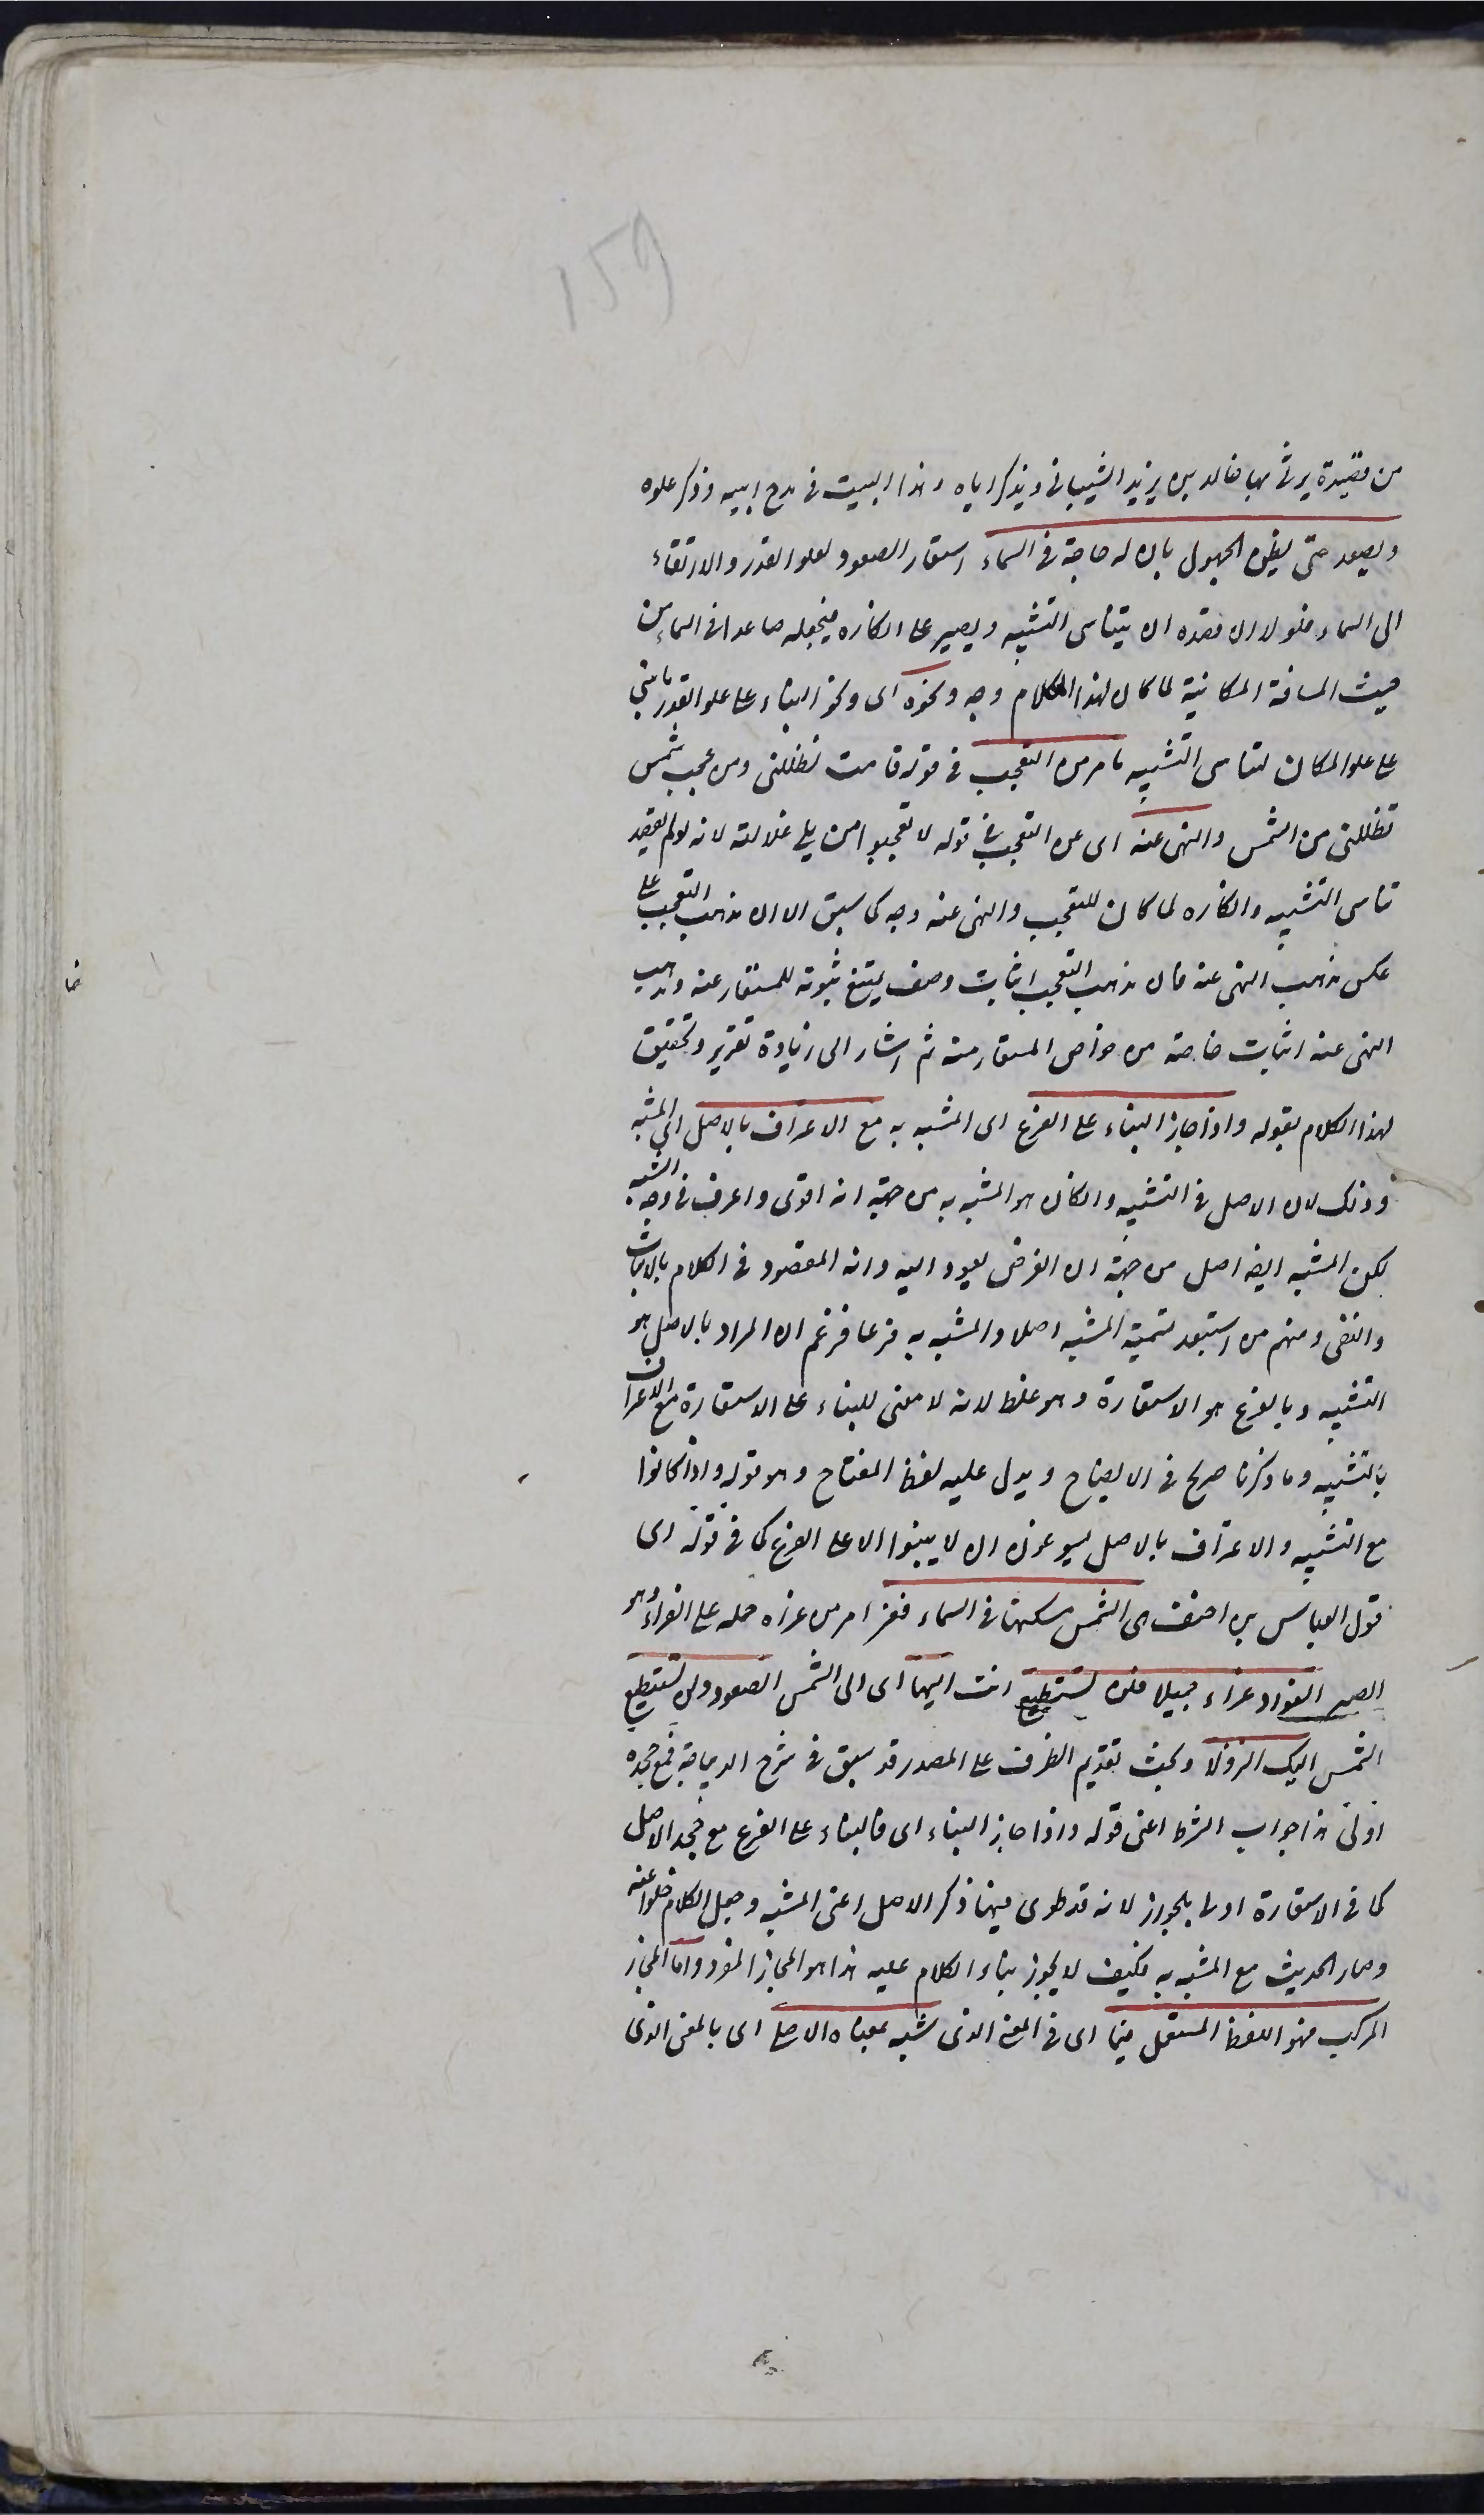 159
من قصيدة يرثى بها خالد بن يزيد الشيبانى ويذكر اباه وهذا البيت فى مدح ابيه وذكر علوه
ويصعد حتى يظن الجهول بان له حاجة فى السماء استعار الصعود لعلو القدر والارتقاء
الى السماء فلولا ان قصده ان يتناسى التشبيه ويصير على انكاره فيجعله صاعدا فى السماء من
حيث المسافة المكانية لما كان لهذا الكلام وجه ونحوه اى ونحو البناء على علو القدر ما يبنى
على علو المكان لتناسى التشبيه ما مر من التعجب فى قوله قامت تظللنى ومن عجب شمس
تظللنى من الشمس والنهى عنه اى عن التعجب فى قوله لا تعجبوا من بلى غلالته لانه لو لم يقصد
تناسى التشبيه وانكاره لما كان للتعجب والنهى عنه وجه كما سبق الا ان مذهب التعجب على
عكس مذهب النهى عنه فان مذهب التعجب اثبات وصف يمتنع ثبوته للمستعار عنه ومذهب
النهى عنه اثبات خاصة من خواص المستعار منه ثم اشار الى زيادة تقرير وتحقيق
لهذا الكلام بقوله واذا جاز البناء على الفرع اى المشبه به مع الاعتراف بالاصل اى المشبه
وذلك لان الاصل فى التشبيه وان كان هو المشبه به من جهة انه اقوى واعرف فى وجه الشبه
لكن المشبه ايضا اصل من جهة ان الغرض يعود اليه وانه المقصود فى الكلام بالاثبات
والنفى ومنهم من استبعد تسمية المشبه اصلا والمشبه به فرعا فزعم ان المراد بالاصل هو
التشبيه وبالفرع هو الاستعارة وهو غلط لانه لا معنى للبناء على الاستعارة مع الاعتراف
بالتشبيه وما ذكرنا صريح فى الايضاح ويدل عليه لفظ المفتاح وهو قوله واذا كانوا
مع التشبيه والاعتراف بالاصل يسوغون ان لا يبنوا الا على الفرع كما فى قوله اى
قول العباس بن احنف هى الشمس مسكنها فى السماء فعز امر من عزاه حمله على العزاء وهو
الصبر الفؤاد عزاء جميلا فلن تستطيع انت اليها اى الى الشمس الصعود ولن تستطيع
الشمس اليك النزولا وبحث تقديم الظرف على المصدر قد سبق فى شرح الديباجة فمع جحده
اولى هذا جواب الشرط اعنى قوله واذا جاز البناء اى فالبناء على الفرع مع جحد الاصل
كما فى الاستعارة اولى بالجواز لانه قد طوى فيها ذكر الاصل اعنى المشبه وجعل الكلام خلوا عنه
وصار الحديث مع المشبه به فكيف لا يجوز بناء الكلام عليه هذا هو المجاز المفرد واما المجاز
المركب فهو اللفظ المستعمل فيما اى فى المعنى الذى شبه بمعناه الاصلى اى بالمعنى الذى